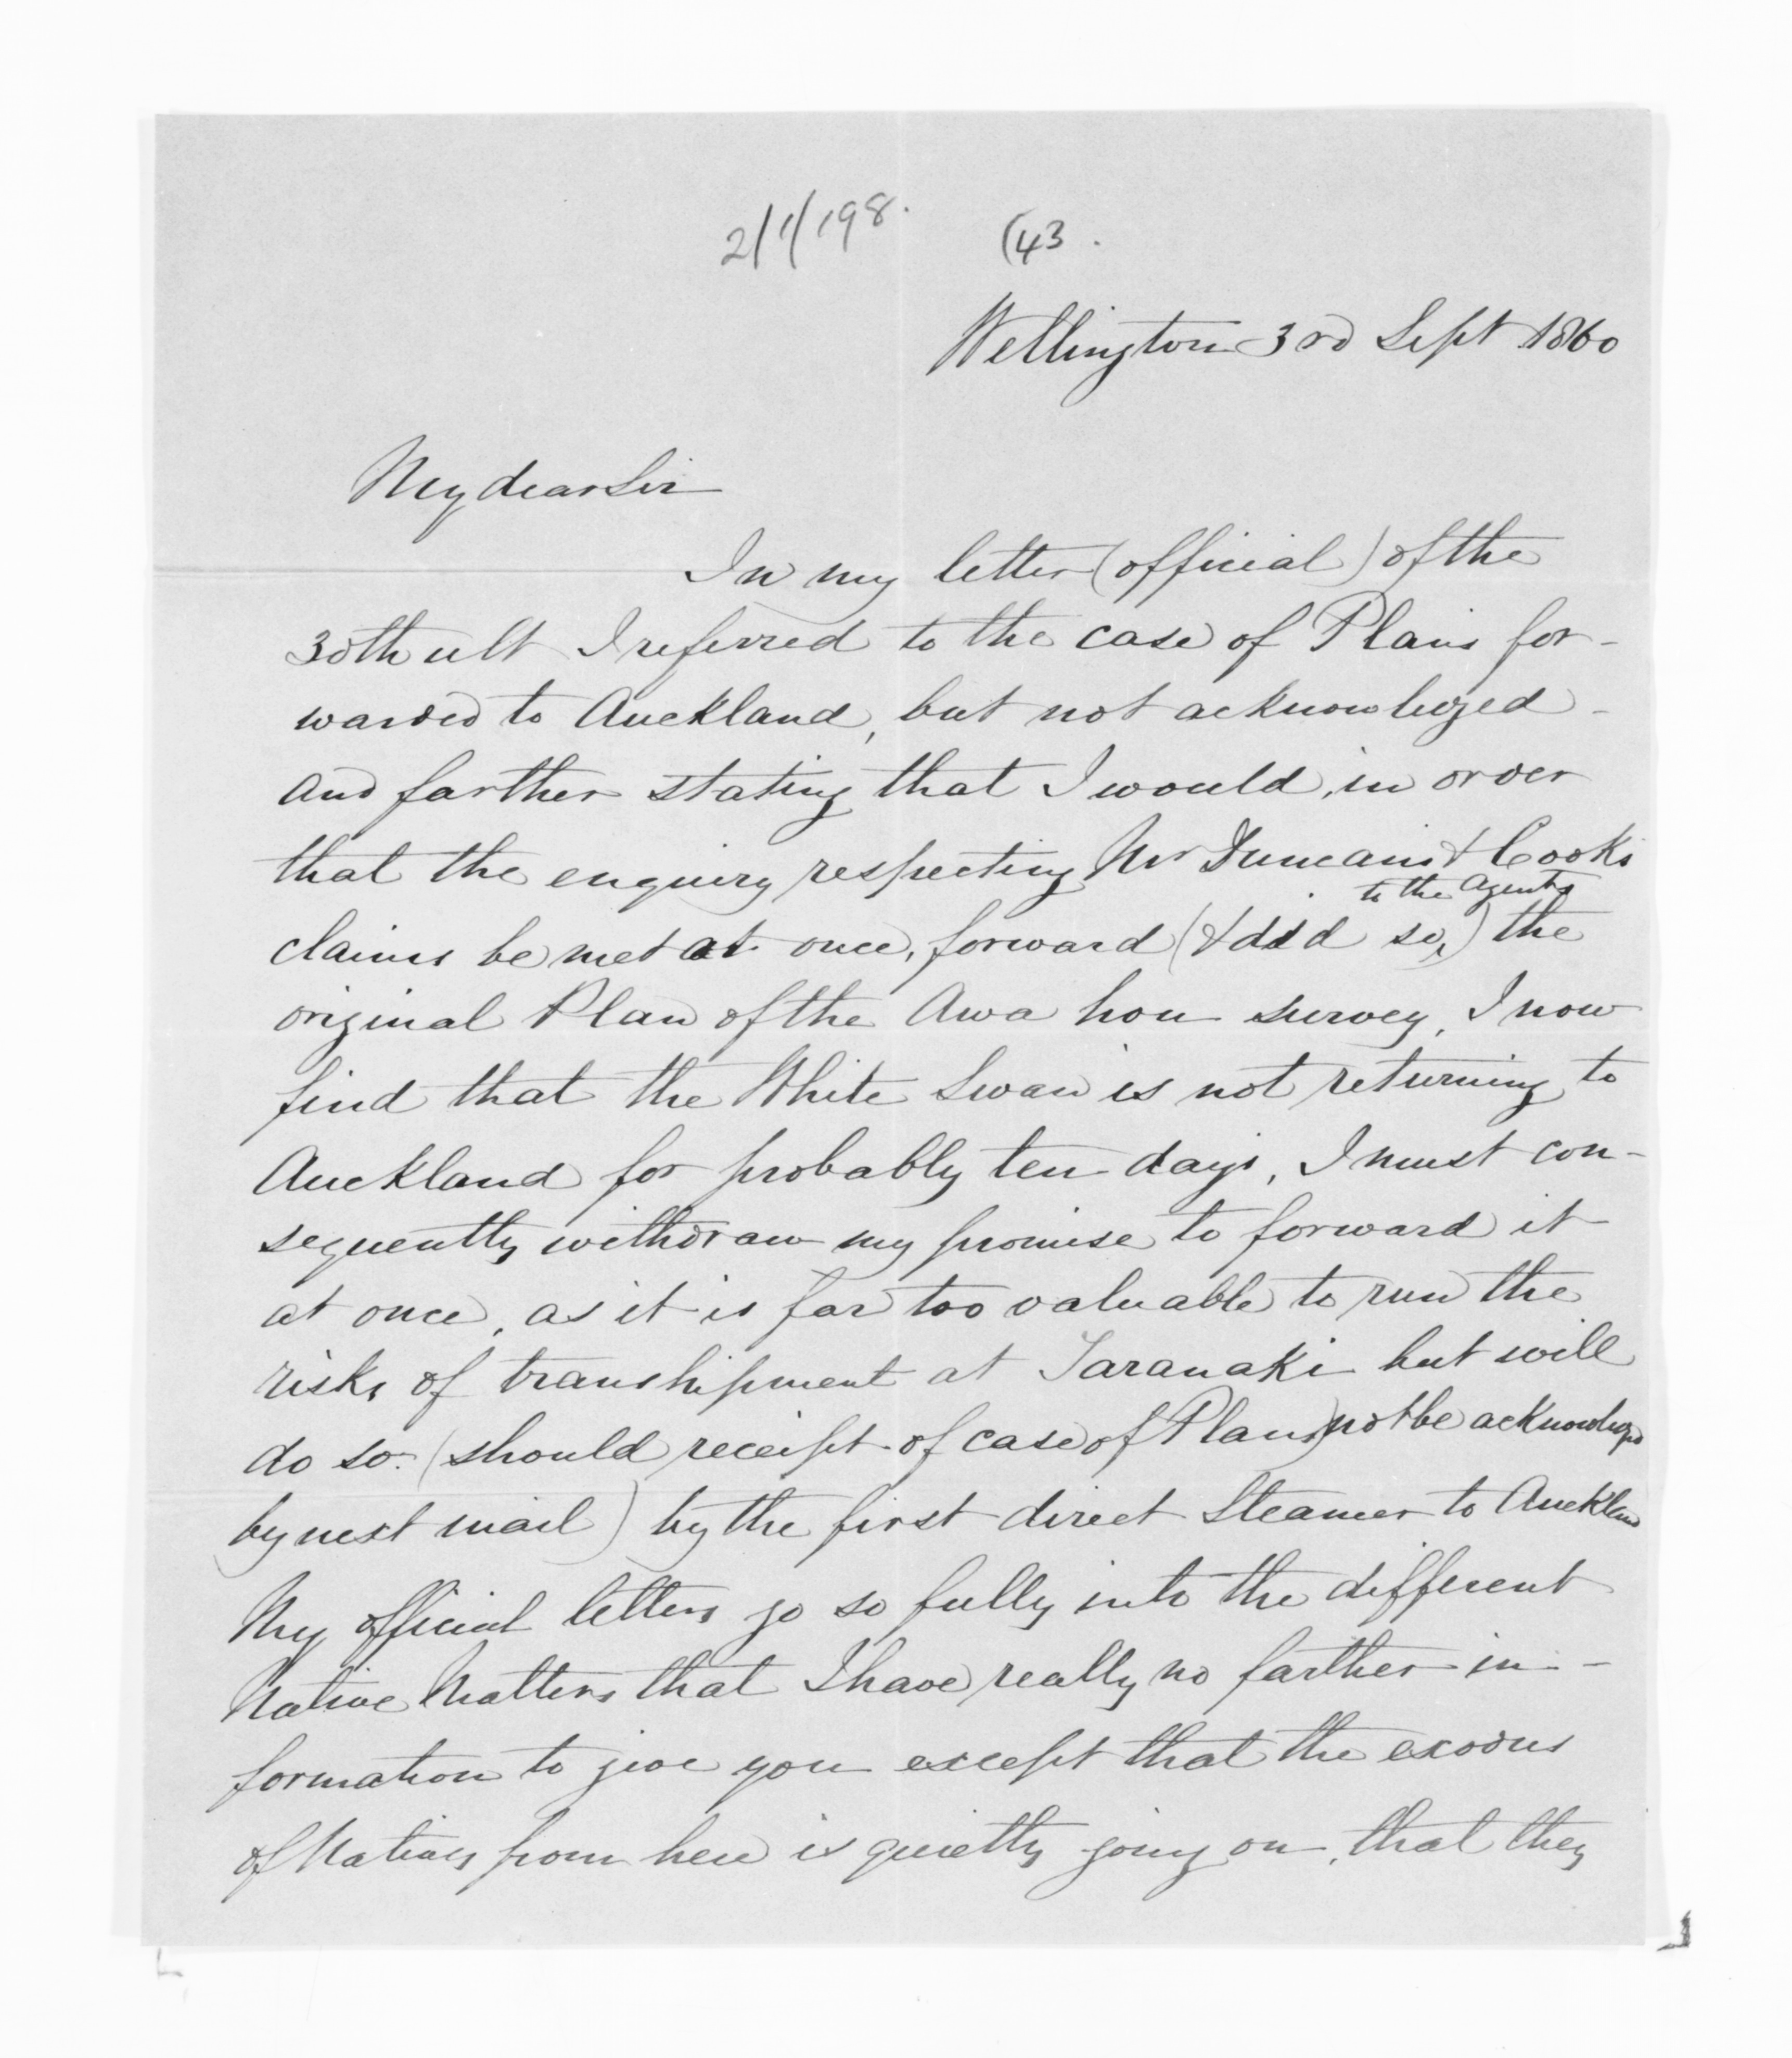 2/1/198.
(43.
Wellington 3rd Sept 1860
My dear Sir
In my letter (official) of the
30th ult I referred to the case of Plans for-
warded to Auckland, but not acknowledged -
and farther stating that I would, in order
that the enquiry respecting Mr Duncans & Cooks
to the Agents
claims be met at once, forward (& did so,) the
original Plan of the Awa hou survey, I now
find that the White Swan is not returning to
Auckland for probably ten days, I must con-
sequently withdraw my promise to forward it
at once, as it is far too valuable to run the
risks of transhipment at Taranaki but will
do so (should receipt of case of Plans not be acknowledged
by next mail) by the first direct Steamer to Auckland
My official letters go so fully into the different
Native Matters that I have really no farther in-
formation to give you except that the exodus
of Natives from here is quietly going on, that they